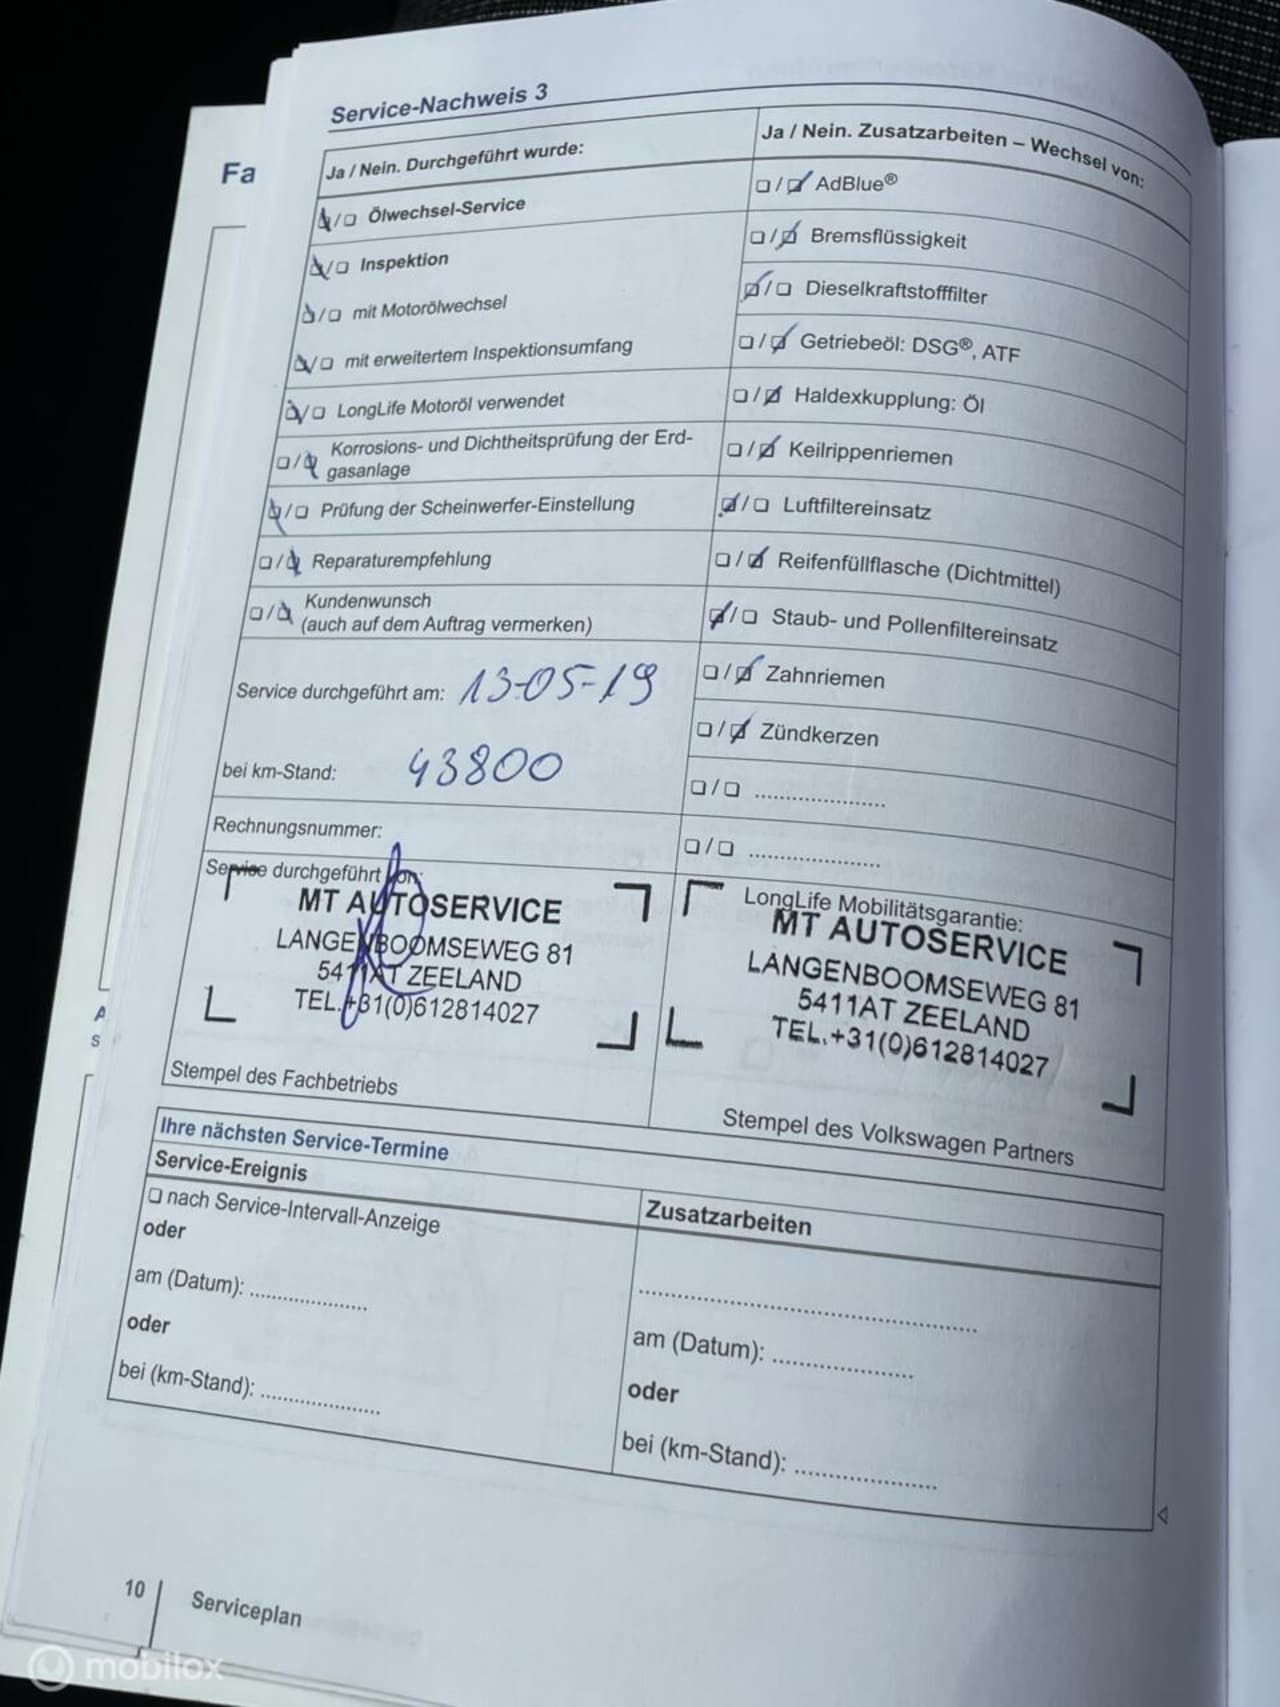 Fa
Service-Nachweis 3
Ja / Nein. Durchgeführt wurde:
☑/☐ Ölwechsel-Service
☑/☐ Inspektion
☑/☐ mit Motorölwechsel
☑/☐ mit erweitertem Inspektionsumfang
☑/☐ LongLife Motoröl verwendet
☐/☑ Korrosions- und Dichtheitsprüfung der Erd-
gasanlage
☑/☐ Prüfung der Scheinwerfer-Einstellung
☐/☑ Reparaturempfehlung
☐/☑ Kundenwunsch
(auch auf dem Auftrag vermerken)
Service durchgeführt am: 13-05-19
bei km-Stand: 43800
Rechnungsnummer:
Service durchgeführt von:
MT AUTOSERVICE
LANGENBOOMSEWEG 81
5411AT ZEELAND
TEL.+31(0)612814027
Stempel des Fachbetriebs
Ja / Nein. Zusatzarbeiten – Wechsel von:
☐/☑ AdBlue®
☐/☑ Bremsflüssigkeit
☑/☐ Dieselkraftstofffilter
☐/☑ Getriebeöl: DSG®, ATF
☐/☑ Haldexkupplung: Öl
☐/☑ Keilrippenriemen
☑/☐ Luftfiltereinsatz
☐/☑ Reifenfüllflasche (Dichtmittel)
☑/☐ Staub- und Pollenfiltereinsatz
☐/☑ Zahnriemen
☐/☑ Zündkerzen
☐/☐ ......................
☐/☐ ......................
LongLife Mobilitätsgarantie:
MT AUTOSERVICE
LANGENBOOMSEWEG 81
5411AT ZEELAND
TEL.+31(0)612814027
Stempel des Volkswagen Partners
Ihre nächsten Service-Termine
Service-Ereignis
☐ nach Service-Intervall-Anzeige
oder
am (Datum): ....................
oder
bei (km-Stand): ....................
Zusatzarbeiten
..................................................
am (Datum): ......................
oder
bei (km-Stand): ......................
10
Serviceplan
mobilox